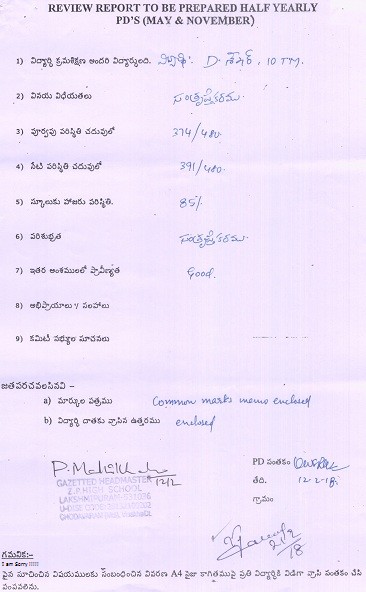 REVIEW REPORT TO BE PREPARED HALF YEARLY
PD'S (MAY & NOVEMBER)
1) విద్యార్ధి క్రమశిక్షణ అందరి విద్యార్థులది. విద్యార్థి: D. శేఖర్, 10 TM.
2) వినయ విధేయతలు సంతృప్తికరము.
3) పూర్వపు పరిస్థితి చదువులో 374/480.
4) నేటి పరిస్థితి చదువులో 391/480.
5) స్కూలుకు హాజరు పరిస్థితి. 85%
6) పరిశుభ్రత సంతృప్తికరము.
7) ఇతర అంశములలో ప్రావీణ్యత Good.
8) అభిప్రాయాలు / సలహాలు
9) కమిటీ సభ్యుల సూచనలు
జతపరచవలసినవి –
a) మార్కుల పత్రము Common marks memo enclosed
b) విద్యార్ధి దాతకు వ్రాసిన ఉత్తరము enclosed
PD సంతకం
12/2
GAZETTED HEADMASTER
Z.P. HIGH SCHOOL
తేది. 12-2-18
గ్రామం
21/2/18
గమనిక:–
I am Sorry !!!!!
పైన సూచించిన విషయములకు సంబంధించిన వివరణ A4 సైజు కాగితముపై ప్రతి విద్యార్థికి విడిగా వ్రాసి సంతకం చేసి
పంపవలెను.